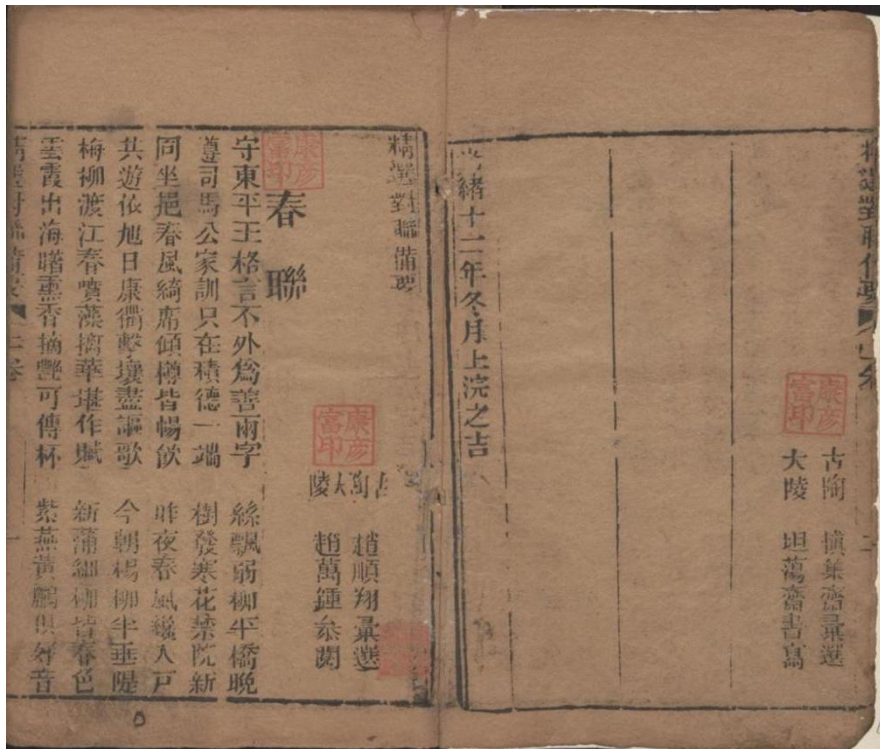 精選對聯備要 上卷 二
古陶 慎集齋彙選
大陵 坦蕩齋書寫
康彥富印
光緒十二年冬月上浣之吉
精選對聯備要
古陶 趙順翔彙選
大陵 趙萬鍾叅閱
康彥富印
春聯
康彥富印
守東平王格言不外爲善兩字 絲飄弱柳平橋晚
遵司馬公家訓只在積德一端 樹發寒花禁院新
同坐挹春風綺席傾樽皆暢飲 昨夜春風纔入戶
共遊依旭日康衢擊壤盡謳歌 今朝楊柳半垂隄
梅柳渡江春噴藻摛華堪作賦 新蒲細柳皆春色
雲霞出海曙薰香摘艷可傳杯 紫燕黃鸝俱好音
精選對聯備要 上卷 一